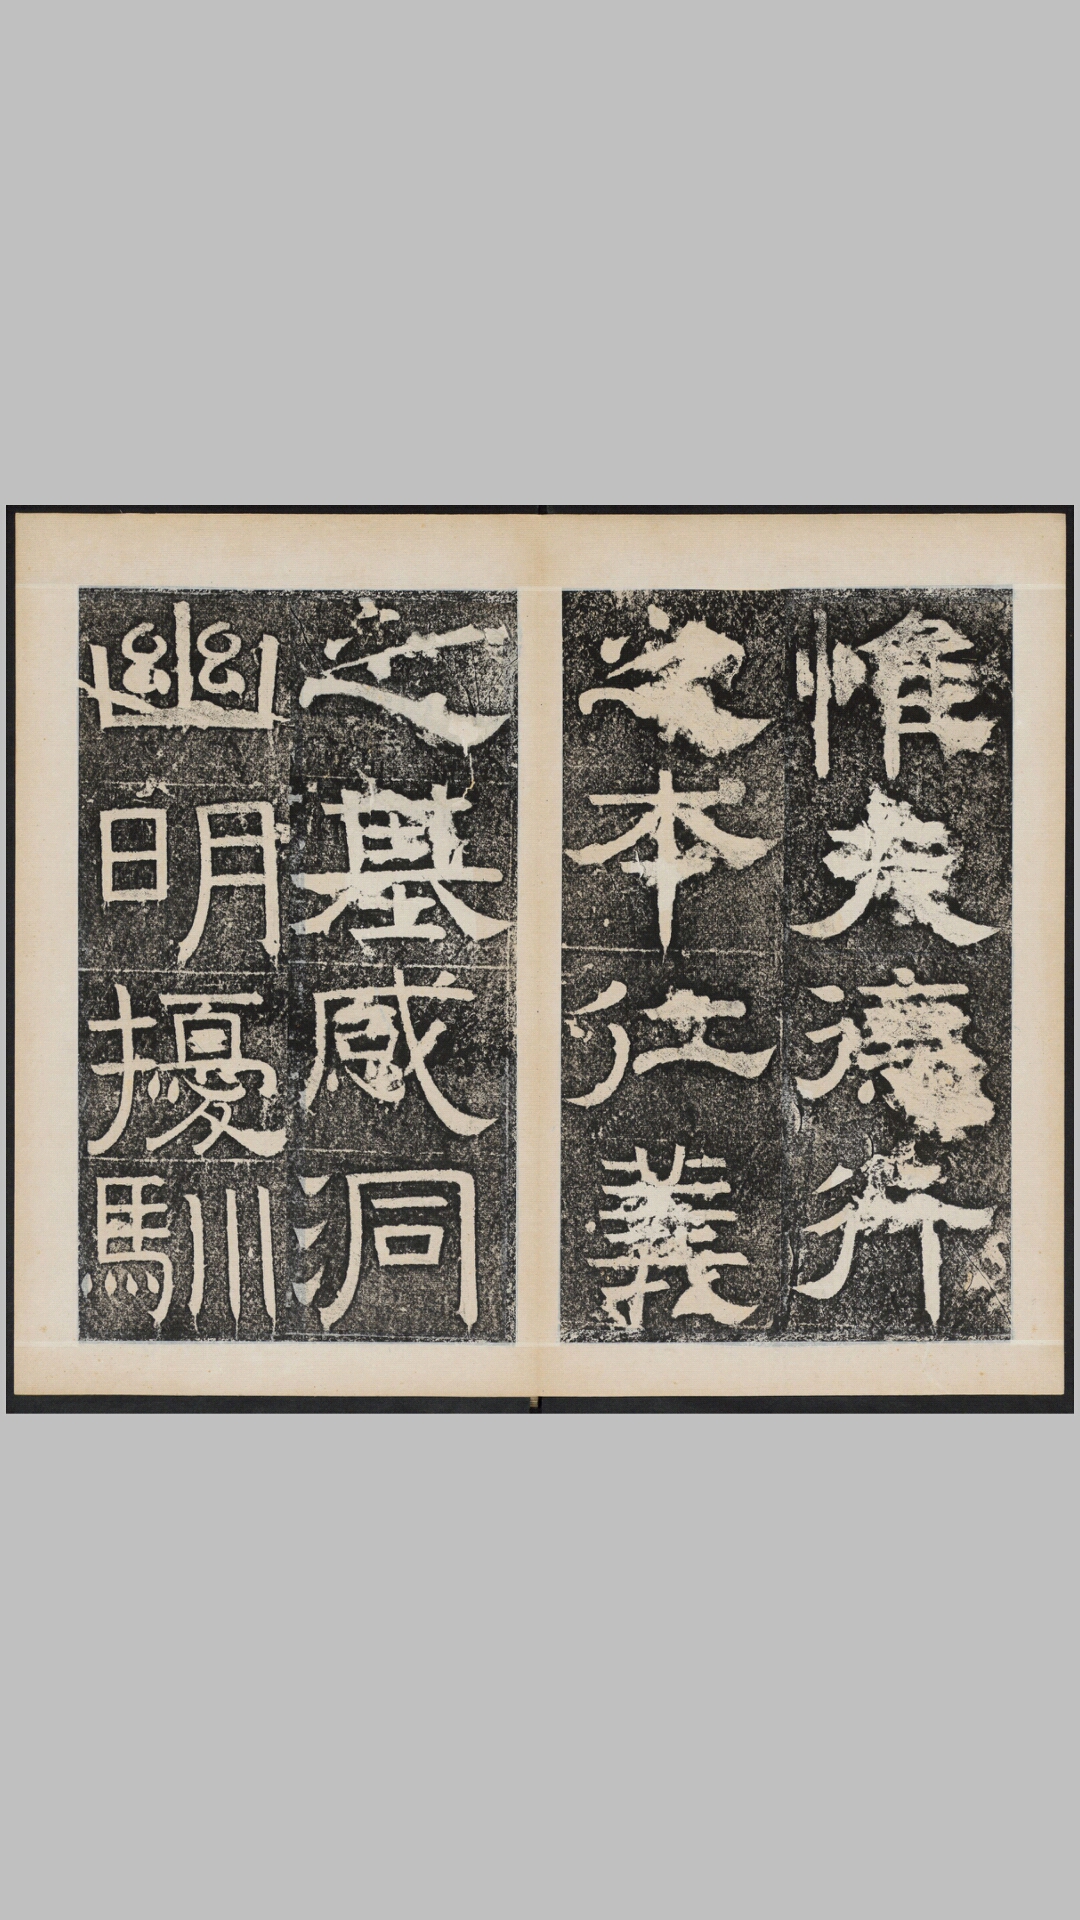 惟夫德行
之本仁義
之基感洞
幽明擾馴